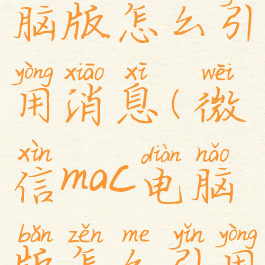 脑版怎么引
yòng xiāo xī wēi
用消息(微
xìn diàn nǎo
信mac电脑
bǎn zěn me yǐn yòng
版怎么引用